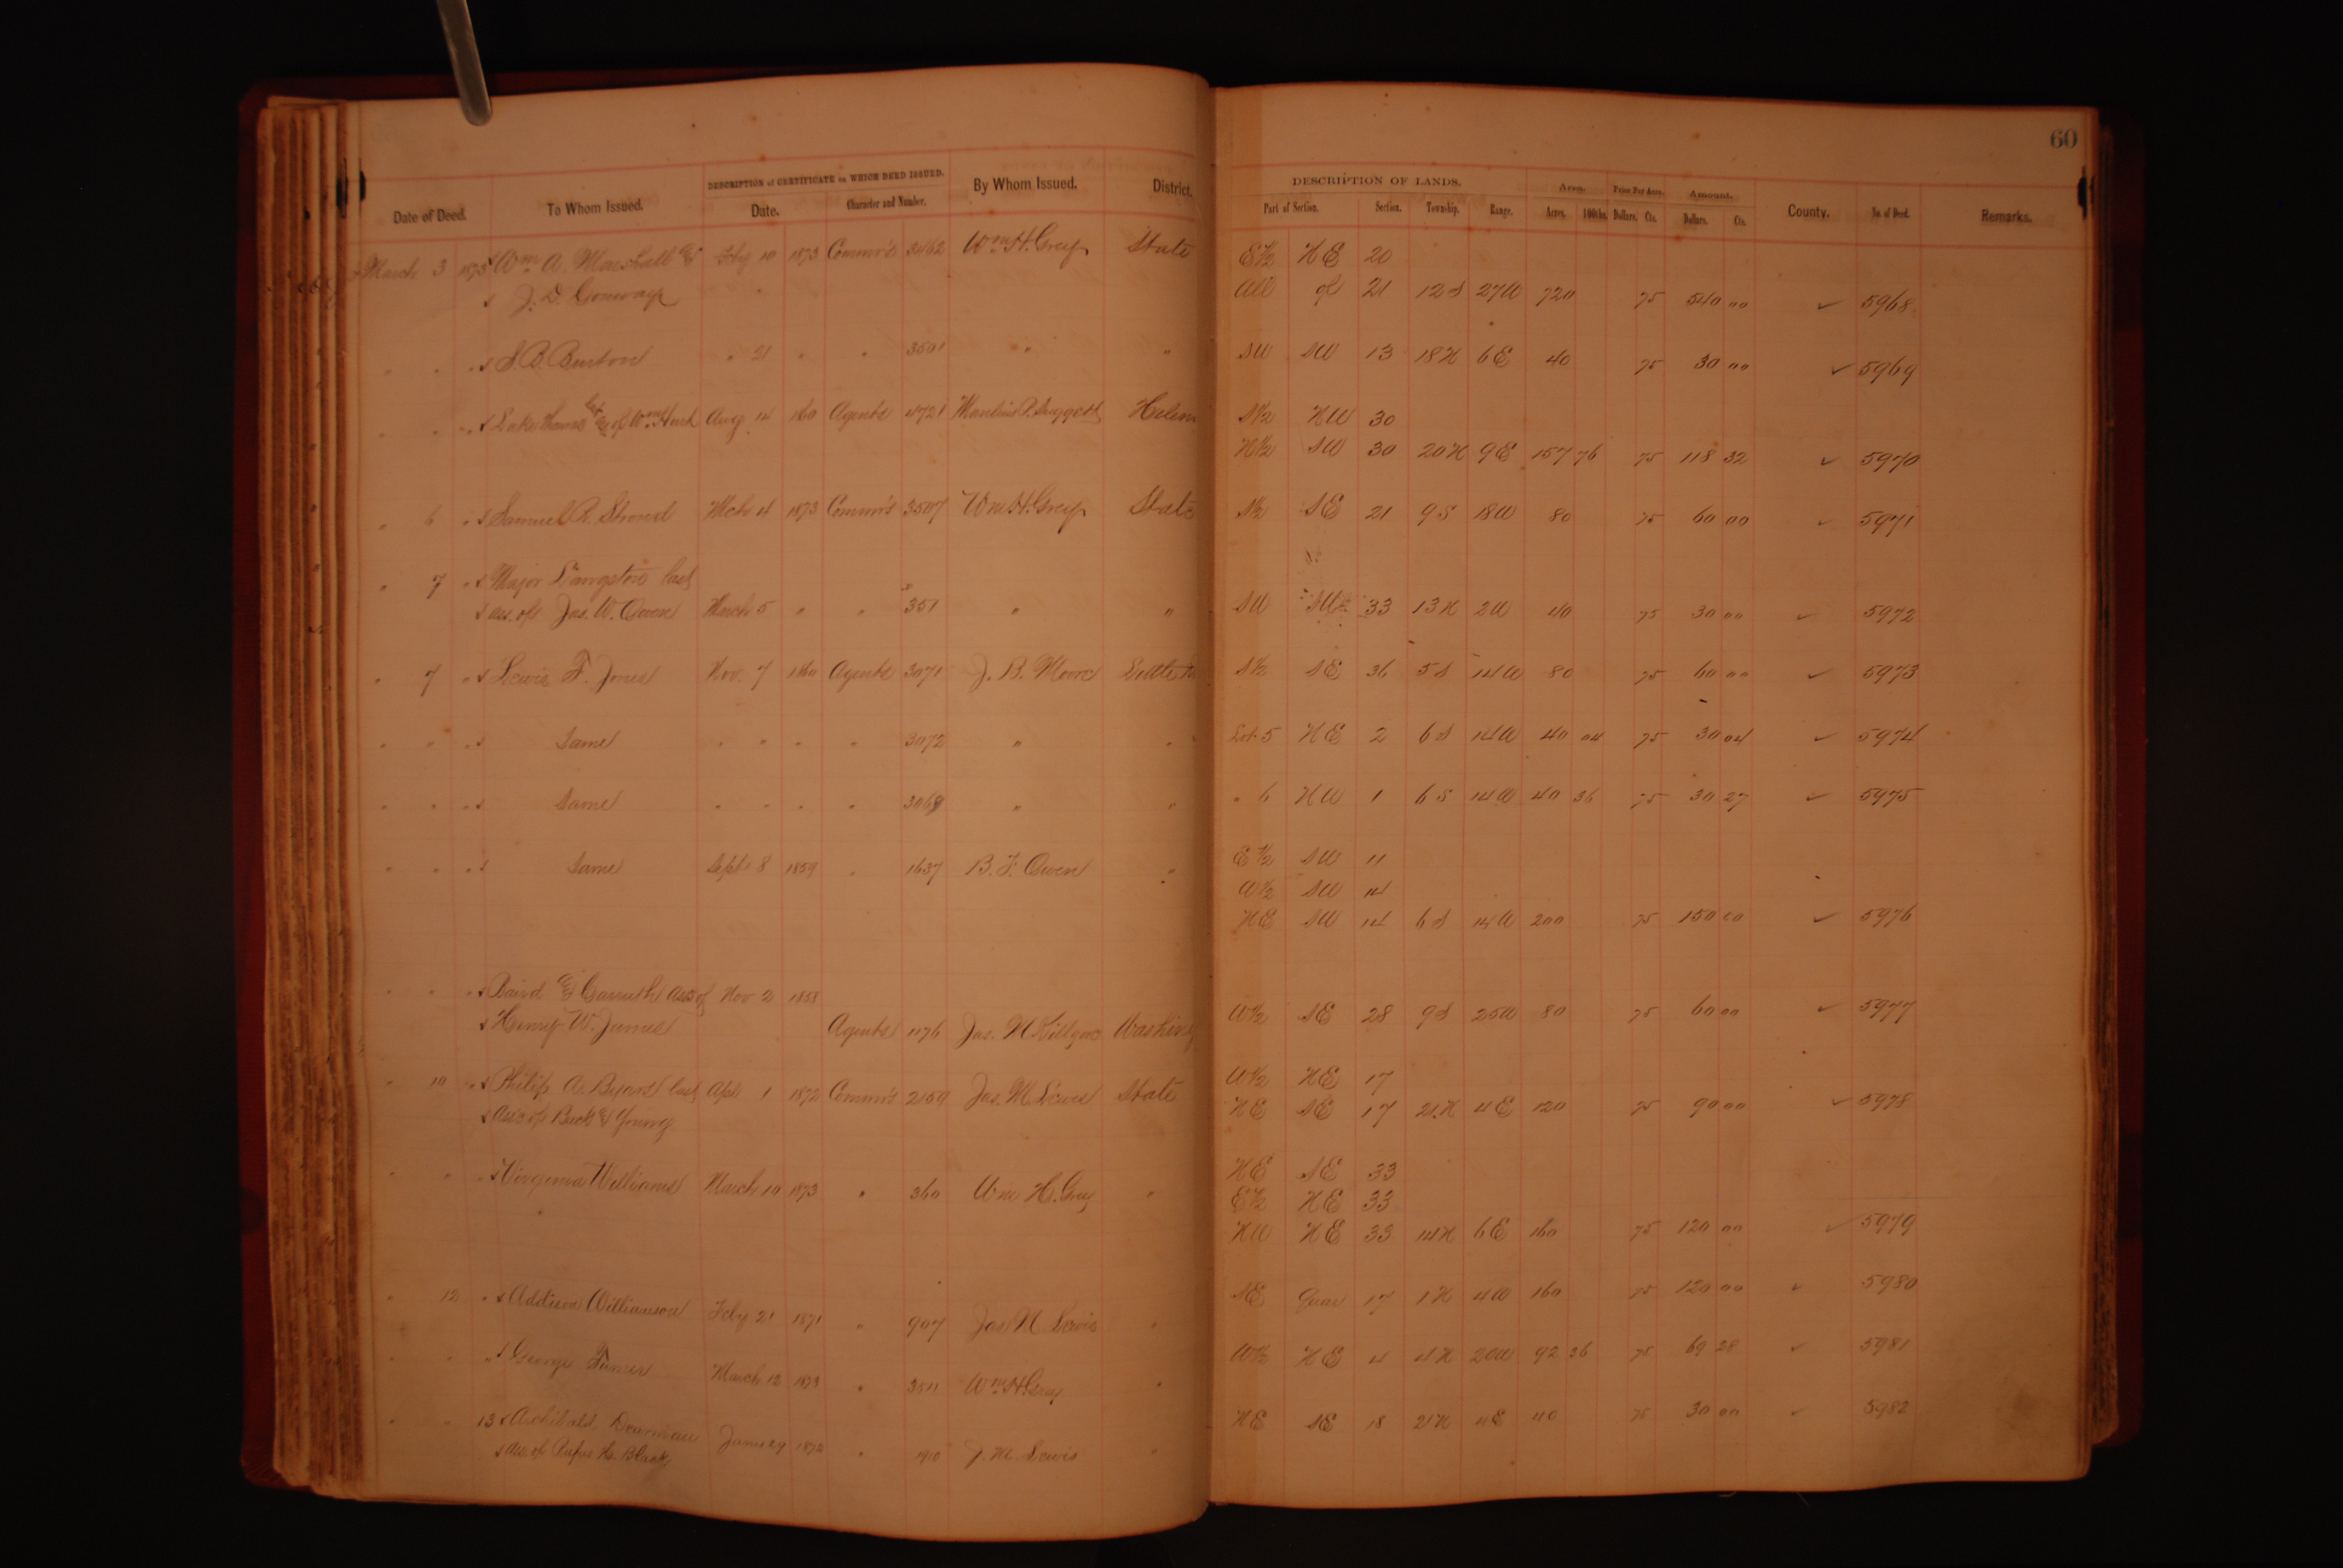 60
DESCRIPTION of CERTIFICATE on WHICH DEED ISSUED. DESCRIPTION OF LANDS. Area. Price Per Acre. Amount.
Date of Deed. To Whom Issued. Date. Character and Number. By Whom Issued. District. Part of Section. Section. Township. Range. Acres. 100ths. Dollars. Cts. Dollars. Cts. County. No. of Deed. Remarks.
March 3 1873 Wm A. Marshall & Feby 10 1873 Commr's 3462 Wm H. Grey State E½ NE 20
J. D. Conway All of 21 12 S 27 W 720 75 540 00 ✓ 5968
" " " S. B. Burton " 21 " " 3501 " " SW SW 13 18 N 6 E 40 75 30 00 ✓ 5969
" " " of Wm Aug 14 1860 Agents 4721 Helena S½ NW 30
N½ SW 30 20 N 9 E 157 76 75 118 32 ✓ 5970
" 6 " Samuel R. Stroud Mch 4 1873 Commr's 3507 Wm H. Grey State S½ SE 21 9 S 18 W 80 75 60 00 ✓ 5971
" 7 " Major Langston last
ass. of Jas. W. Owen March 5 " " 351 " " SW SW 33 13 N 2 W 40 75 30 00 ✓ 5972
" 7 " Lewis F. Jones Nov. 7 1860 Agents 3071 J. B. Moore Little S½ SE 36 5 S 14 W 80 75 60 00 ✓ 5973
" " " Same " " " " 3072 " " Lot 5 NE 2 6 S 14 W 40 04 75 30 04 ✓ 5974
" " " Same " " " " 3069 " " " 6 NW 1 6 S 14 W 40 36 75 30 27 ✓ 5975
" " " Same Sept 8 1859 " 1637 B. F. Owen " E½ SW 11
W½ SW 14
NE SW 14 6 S 14 W 200 75 150 00 ✓ 5976
" " " Baird & Garruth ass of Nov 2 1858
Henry W. James Agents 1176 Jas. Washing W½ SE 28 9 S 25 W 80 75 60 00 ✓ 5977
" 10 " Philip A. Byars last Apl 1 1872 Commr's 2159 Jas. M. Lewis State W½ NE 17
Ass of Buck & Young NE SE 17 21 N 4 E 120 75 90 00 ✓ 5978
" " " Virginia Williams March 10 1873 " 360 Wm H. Grey " NE SE 33
E½ NE 33
NW NE 33 14 N 6 E 160 75 120 00 ✓ 5979
" 12 " Addison Williamson Feby 21 1871 " 907 Jas M. Lewis " SE Quar 17 1 N 4 W 160 75 120 00 ✓ 5980
" " " George Turner March 12 1873 " 3511 Wm H. Grey " W½ NE 4 4 N 20 W 92 36 75 69 28 ✓ 5981
" " 13 Archibald 29 1872 " 1910 J. M. Lewis " NE SE 18 21 N 4 E 40 75 30 00 ✓ 5982
Ass. of Rufus H. Black